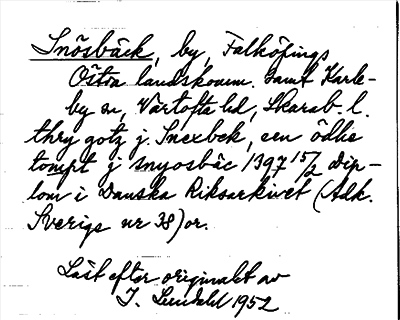 Snösbäck, by, Falköpings
Östra landskomm. samt Karle-
by sn, Vartofta hd, Skarab. l.
thry gotz j. Snexbek, een ödhe
tompt j snyosbäc 1397 15/2 Dip-
lom i Danska Riksarkivet (Adk.
Sverige nr 38) or.
Läst efter originalet av
J. Lundahl 1952